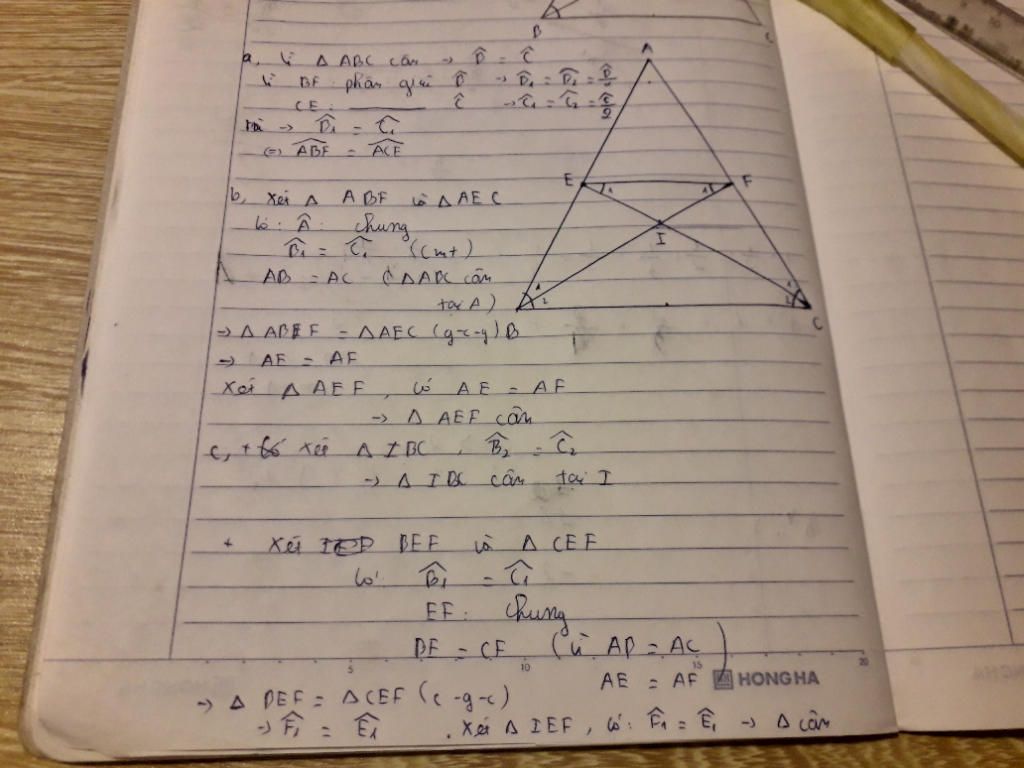 B C
a, Vì △ ABC cân → B̂ = Ĉ
Vì BF: phân giác B̂ → B̂₁ = B̂₂ = B̂/2
CE: ——— Ĉ → Ĉ₁ = Ĉ₂ = Ĉ/2
→ B̂₁ = Ĉ₁
(=) ABF = ACE
A
E 1 1 F
I
1 2 1 2
B C
b, Xét △ ABF và △AEC
Có: Â: chung
B̂₁ = Ĉ₁ (cmt)
AB = AC (△ABC cân
tại A)
→ △ABF = △AEC (g-c-g)
→ AE = AF
Xét △AEF, có AE = AF
→ △AEF cân
c, + Xét △IBC, B̂₂ = Ĉ₂
→ △IBC cân tại I
+ Xét BEF và △CEF
Có B̂₁ = Ĉ₁
EF: chung
BE = CF (vì AB = AC
AE = AF)
→ △ BEF = △CEF (c-g-c)
→ F̂₁ = Ê₁ . Xét △IEF, có: F̂₁ = Ê₁ → △ cân
5 10 15 20
HONG HA